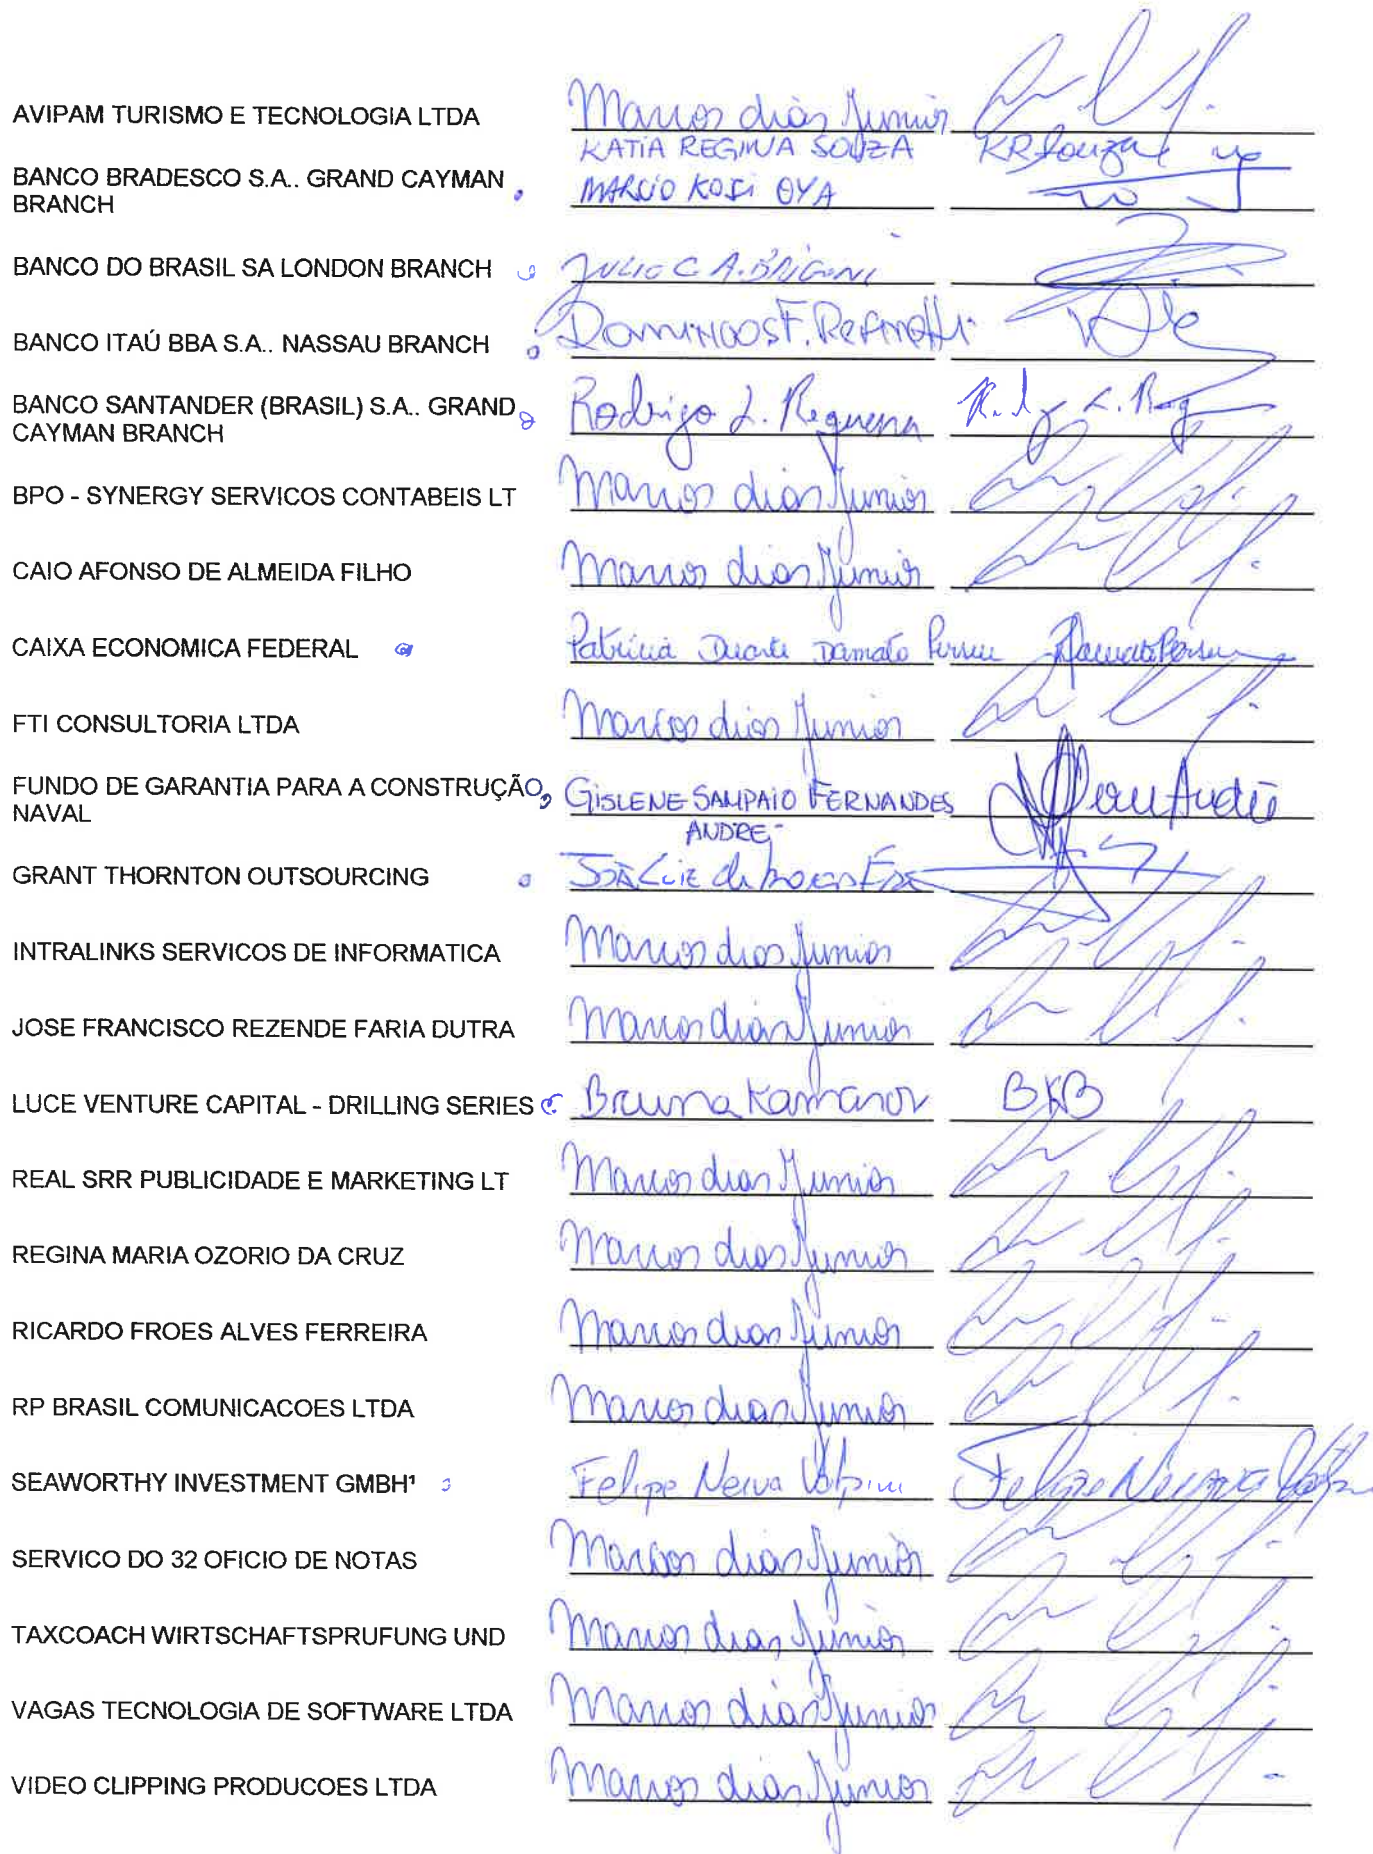 AVIPAM TURISMO E TECNOLOGIA LTDA Marcos dias Junior
KATIA REGINA SOUZA KRSouza
BANCO BRADESCO S.A.. GRAND CAYMAN
BRANCH MARCIO KOSI OYA
BANCO DO BRASIL SA LONDON BRANCH JULIO C A. BRIGONI
BANCO ITAÚ BBA S.A.. NASSAU BRANCH DOMINGOS F.
BANCO SANTANDER (BRASIL) S.A.. GRAND
CAYMAN BRANCH Rodrigo L. Requena
BPO - SYNERGY SERVICOS CONTABEIS LT Marcos dias Junior
CAIO AFONSO DE ALMEIDA FILHO Marcos dias Junior
CAIXA ECONOMICA FEDERAL Patrícia Duarte Damato
FTI CONSULTORIA LTDA Marcos dias Junior
FUNDO DE GARANTIA PARA A CONSTRUÇÃO
NAVAL GISLENE SAMPAIO FERNANDES
ANDRE
GRANT THORNTON OUTSOURCING
INTRALINKS SERVICOS DE INFORMATICA Marcos dias Junior
JOSE FRANCISCO REZENDE FARIA DUTRA Marcos dias Junior
LUCE VENTURE CAPITAL - DRILLING SERIES Bruna Kamarov BKB
REAL SRR PUBLICIDADE E MARKETING LT Marcos dias Junior
REGINA MARIA OZORIO DA CRUZ Marcos dias Junior
RICARDO FROES ALVES FERREIRA Marcos dias Junior
RP BRASIL COMUNICACOES LTDA Marcos dias Junior
SEAWORTHY INVESTMENT GMBH¹ Felipe Neiva Volpini
SERVICO DO 32 OFICIO DE NOTAS Marcos dias Junior
TAXCOACH WIRTSCHAFTSPRUFUNG UND Marcos dias Junior
VAGAS TECNOLOGIA DE SOFTWARE LTDA Marcos dias Junior
VIDEO CLIPPING PRODUCOES LTDA Marcos dias Junior